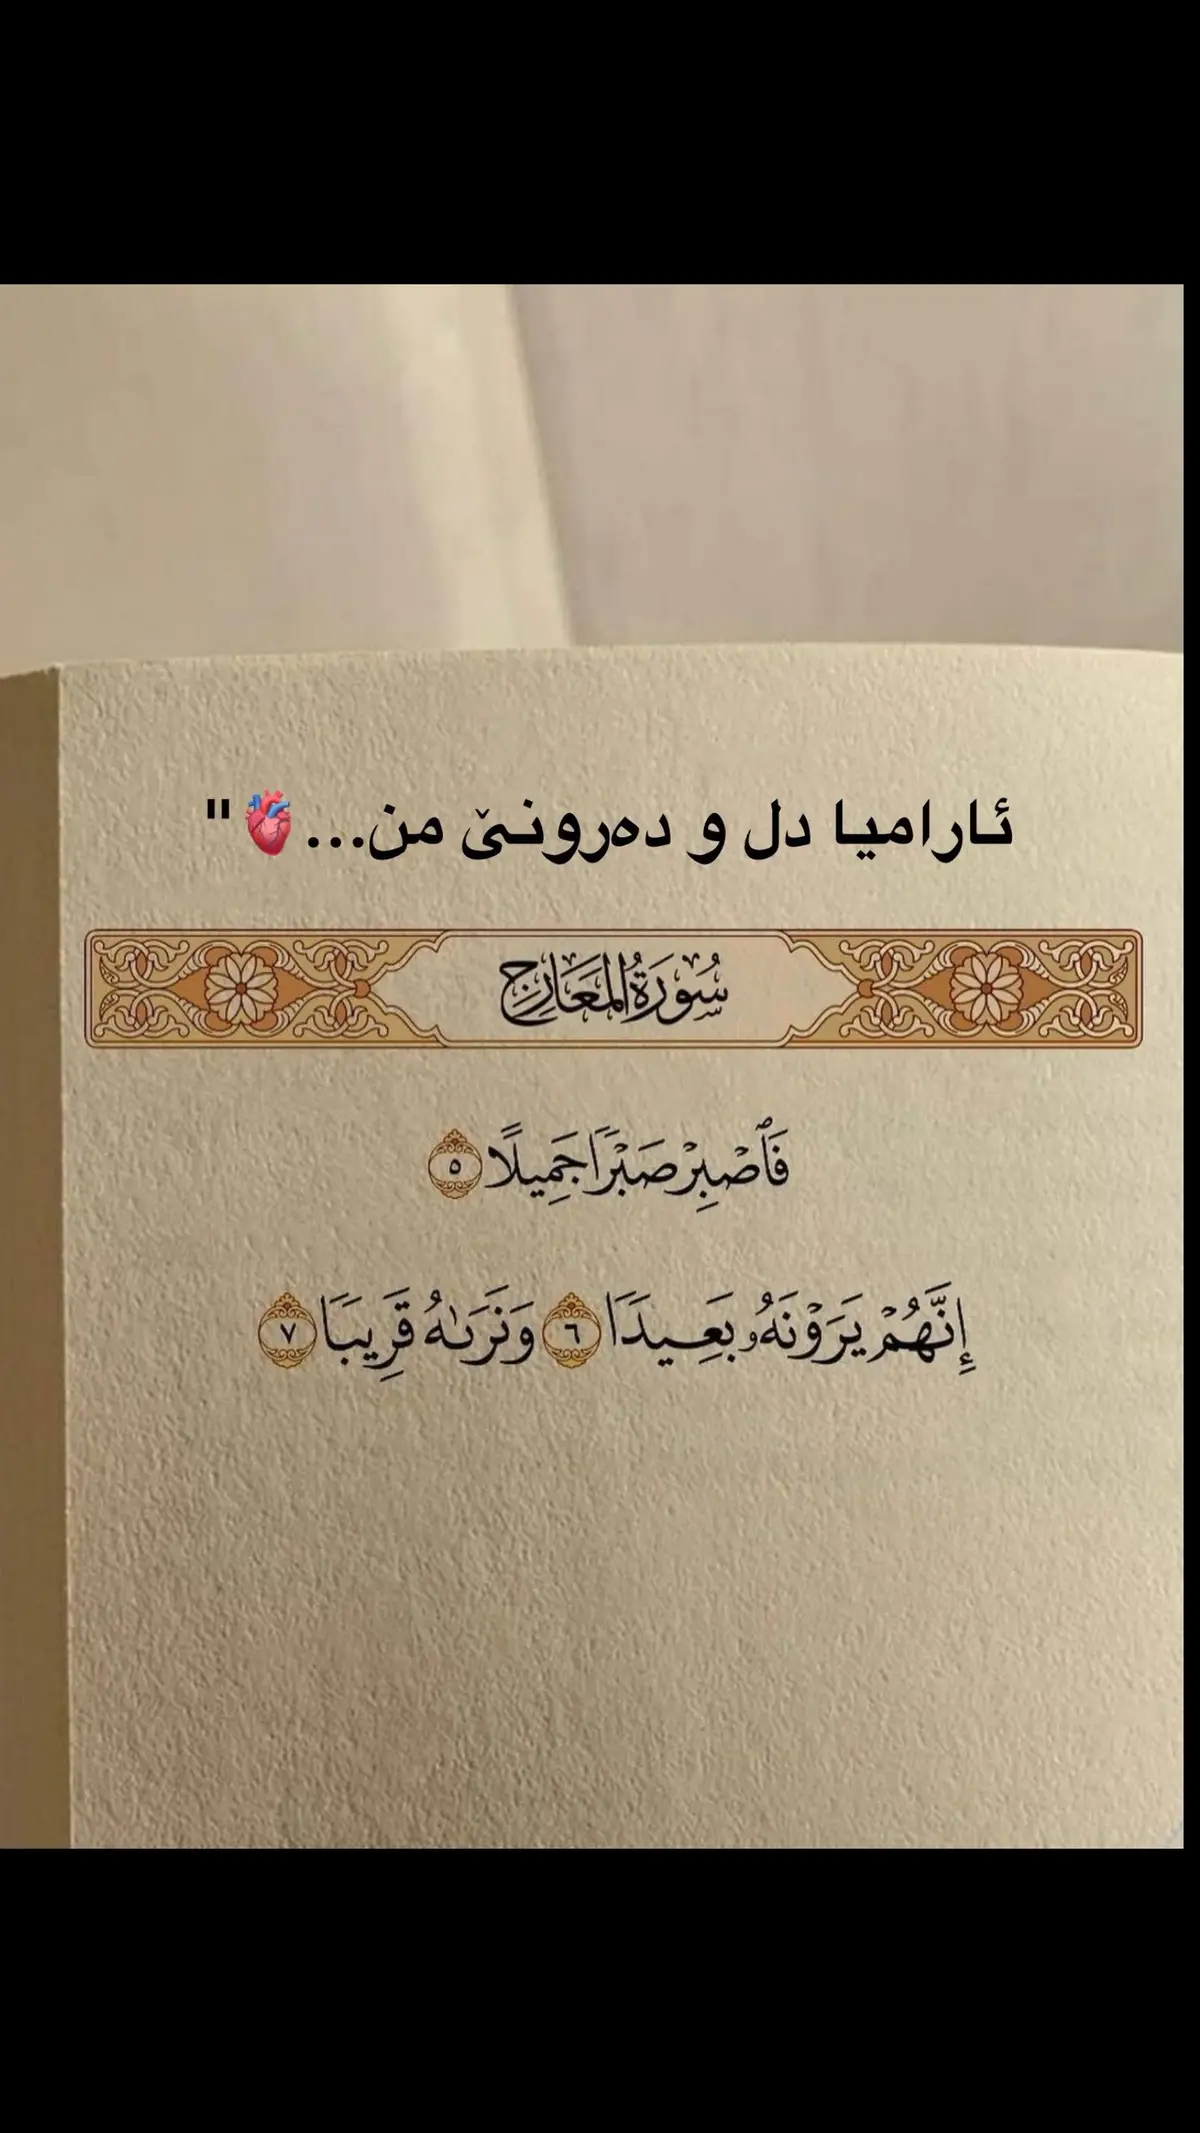 ئارامیا دل و دەرونێ من...🫀"
سُورَةُ المَعَارِجِ
فَٱصۡبِرۡ صَبۡرٗا جَمِيلًا ٥
إِنَّهُمۡ يَرَوۡنَهُۥ بَعِيدٗا ٦ وَنَرَىٰهُ قَرِيبٗا ٧